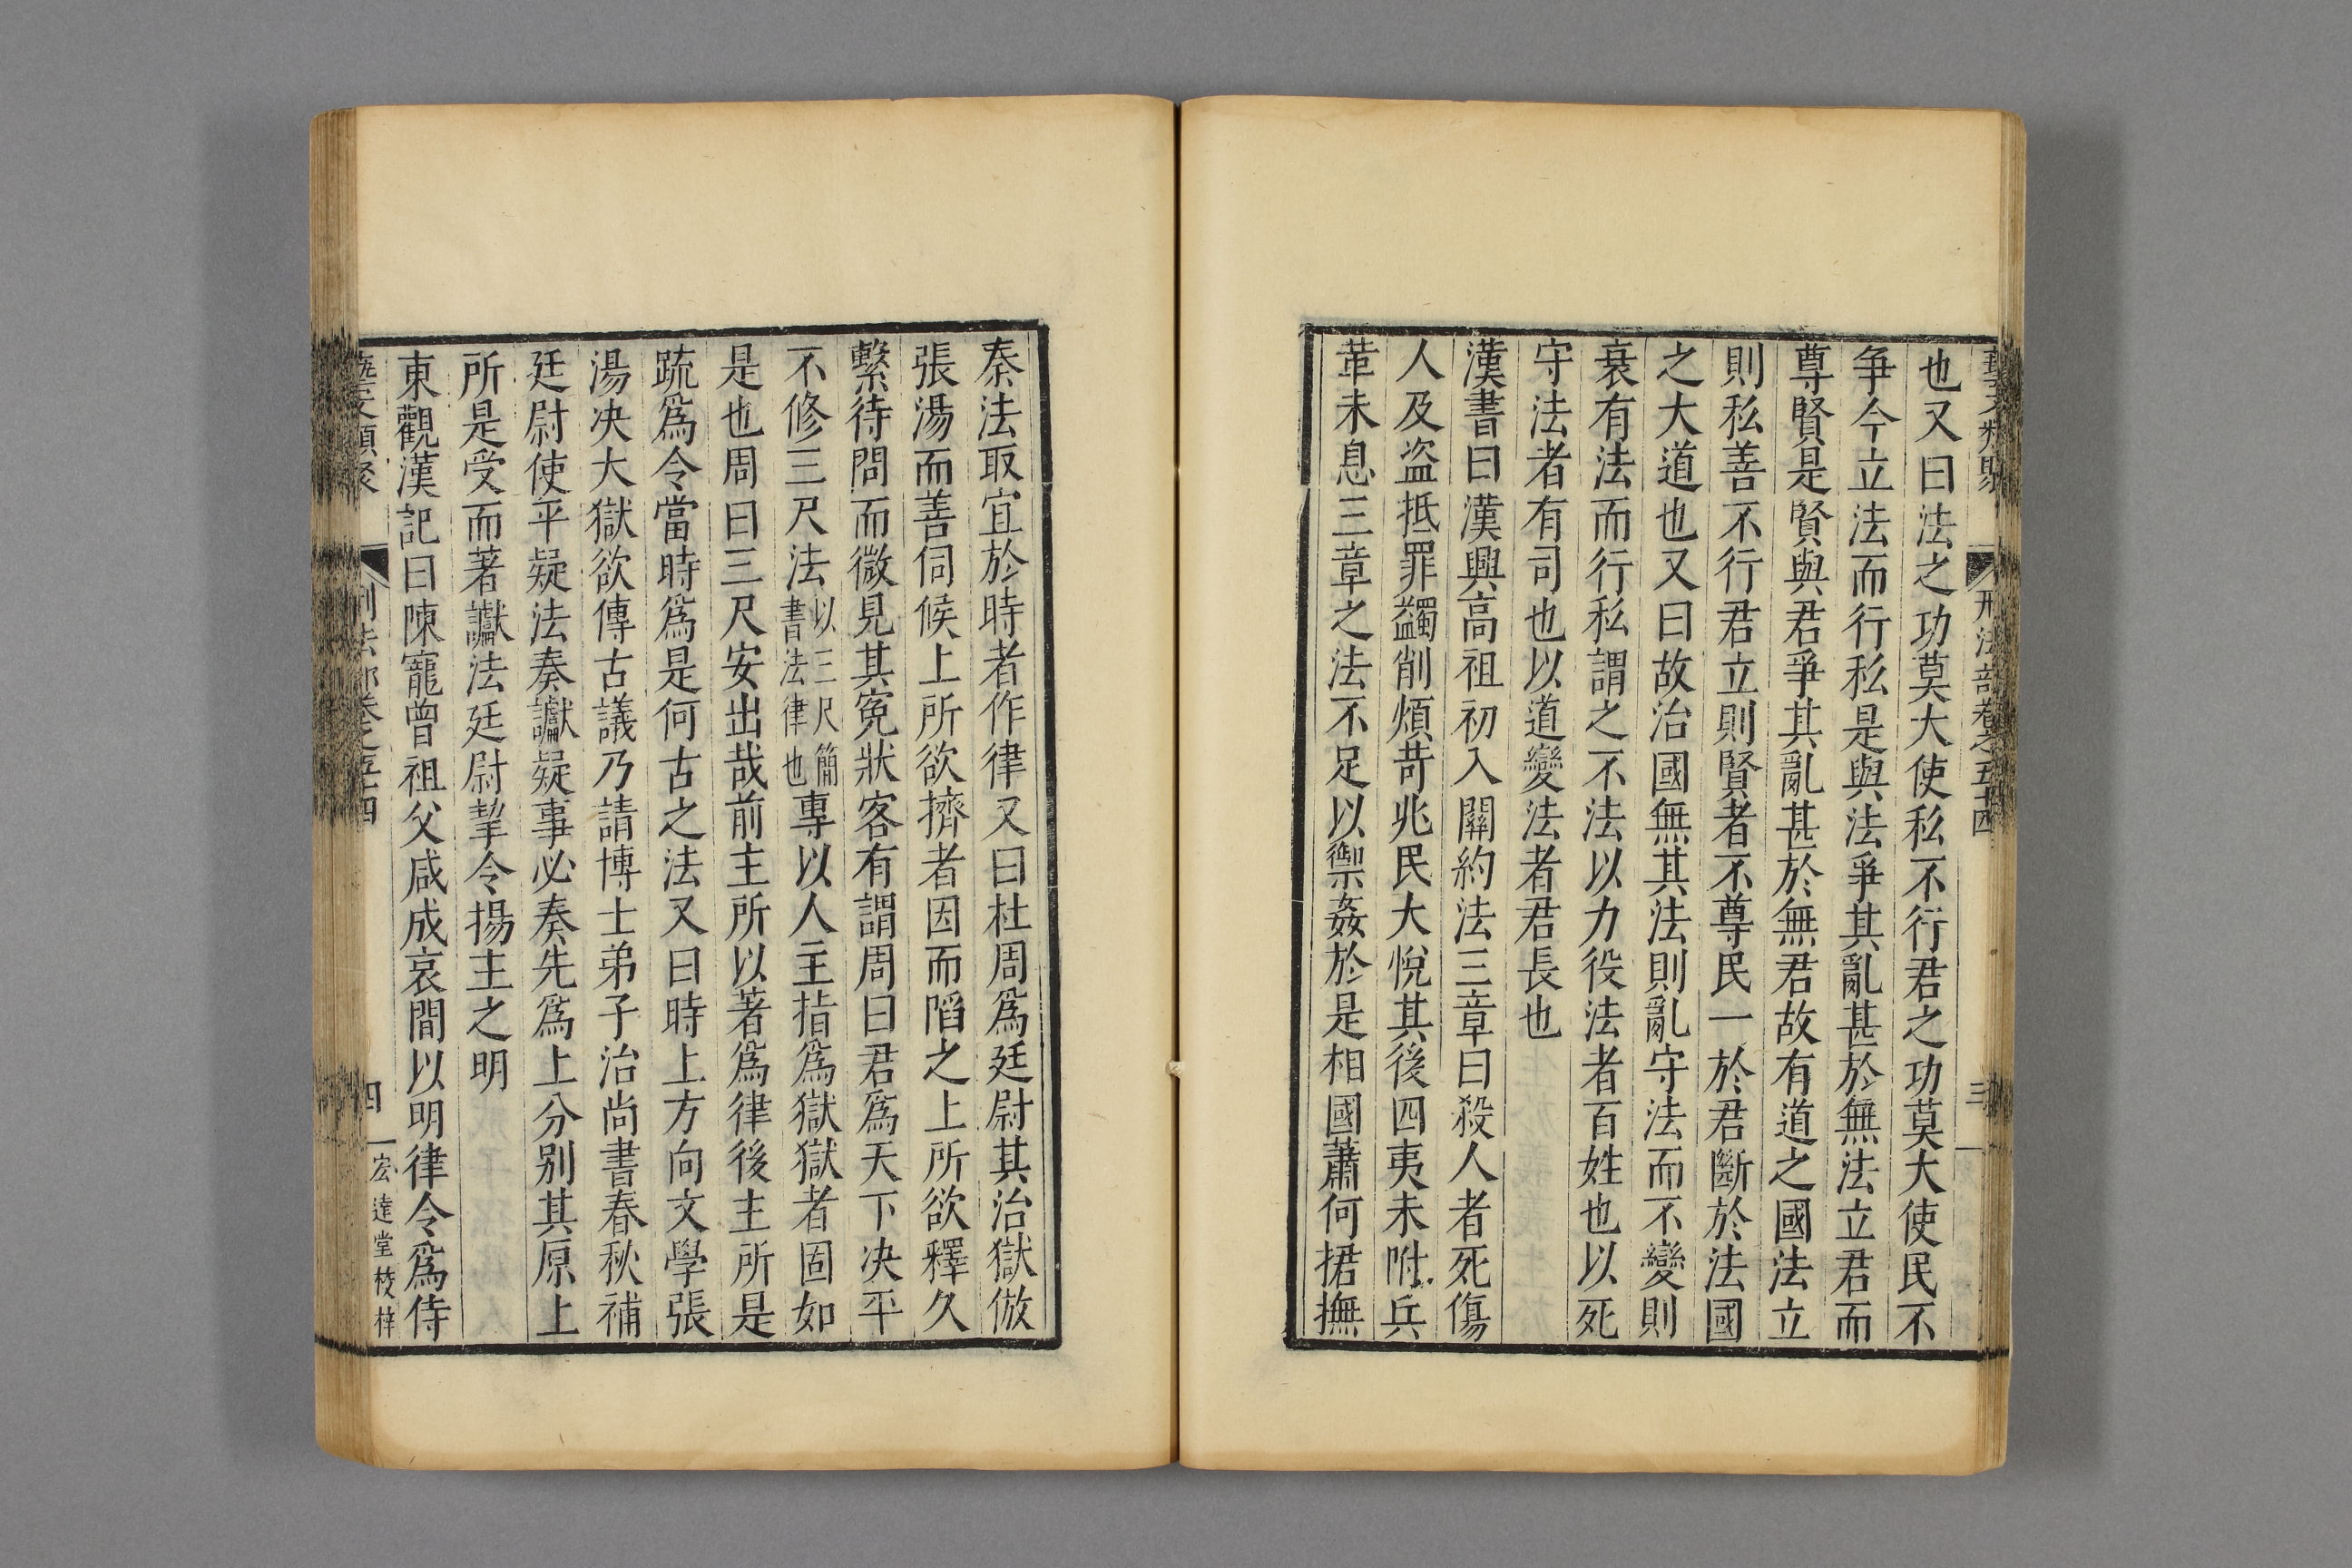 藝文類聚 刑法部卷之五十四 三
也又曰法之功莫大使私不行君之功莫大使民不
争今立法而行私是與法爭其亂甚於無法立君而
尊賢是賢與君爭其亂甚於無君故有道之國法立
則私善不行君立則賢者不尊民一於君斷於法國
之大道也又曰故治國無其法則亂守法而不變則
衰有法而行私謂之不法以力役法者百姓也以死
守法者有司也以道變法者君長也
漢書曰漢興高祖初入關約法三章曰殺人者死傷
人及盗抵罪蠲削煩苛兆民大悅其後四夷未附兵
革未息三章之法不足以禦姦於是相國蕭何捃撫
秦法取宜於時者作律又曰杜周爲廷尉其治獄倣
張湯而善伺候上所欲擠者因而陷之上所欲釋久
繫待問而微見其寃狀客有謂周曰君爲天下决平
不修三尺法以三尺簡書法律也專以人主指爲獄獄者固如
是也周曰三尺安出哉前主所以著爲律後主所是
疏爲令當時爲是何古之法又曰時上方向文學張
湯决大獄欲傳古議乃請博士弟子治尚書春秋補
廷尉使平疑法奏讞疑事必奏先爲上分别其原上
所是受而著讞法廷尉挈令揚主之明
東觀漢記曰陳寵曾祖父咸成哀間以明律令爲侍
藝文類聚 刑法部卷之五十四 四 宏達堂校梓